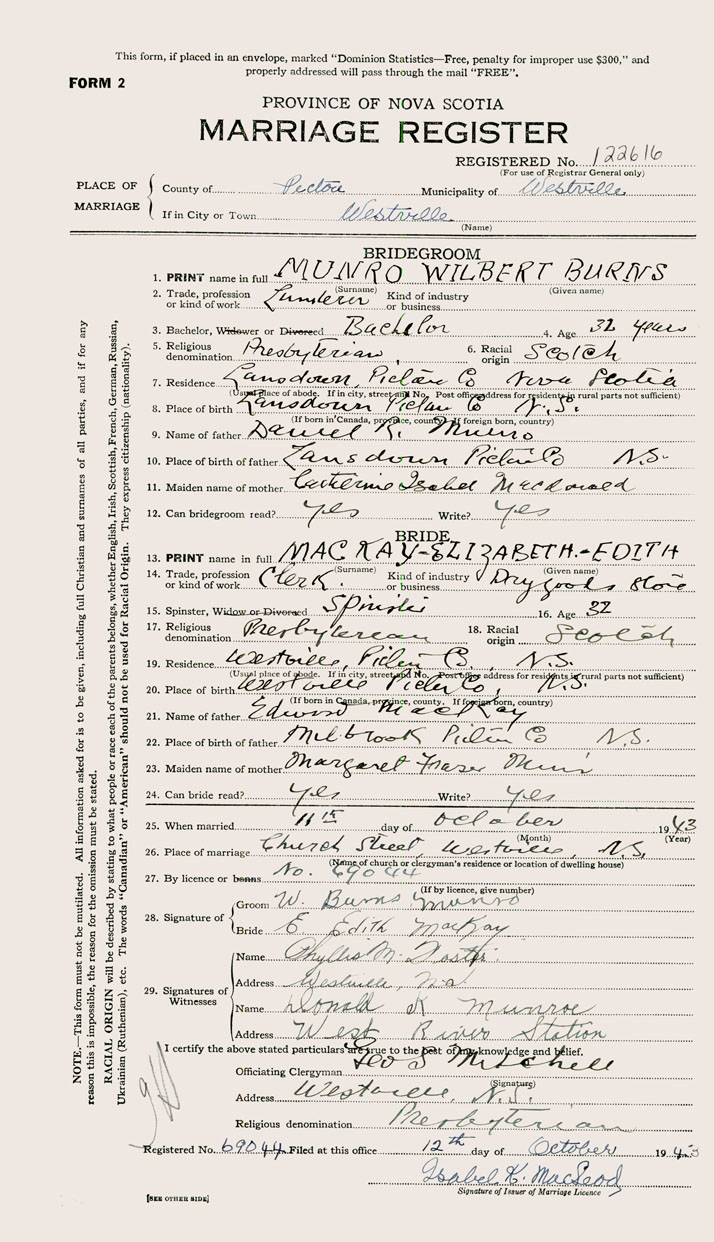 This form, if placed in an envelope, marked “Dominion Statistics—Free, penalty for improper use $300,” and
properly addressed will pass through the mail “FREE”.
FORM 2
PROVINCE OF NOVA SCOTIA
MARRIAGE REGISTER
REGISTERED No. 122616
(For use of Registrar General only)
PLACE OF MARRIAGE
County of Pictou Municipality of Westville
If in City or Town Westville
(Name)
BRIDEGROOM
1. PRINT name in full MUNRO WILBERT BURNS
(Surname) (Given name)
2. Trade, profession or kind of work Lumberer Kind of industry or business
3. Bachelor, Widower or Divorced Bachelor 4. Age 32 years
5. Religious denomination Presbyterian 6. Racial origin Scotch
7. Residence Lansdown, Pictou Co Nova Scotia
(Usual place of abode. If in city, street and No. Post office address for residents in rural parts not sufficient)
8. Place of birth Lansdown Pictou Co N.S.
(If born in Canada, province, county. If foreign born, country)
9. Name of father Daniel K. Munro
10. Place of birth of father Lansdown Pictou Co N.S.
11. Maiden name of mother Catherine Isabel Macdonald
12. Can bridegroom read? Yes Write? Yes
BRIDE
13. PRINT name in full MACKAY-ELIZABETH.-EDITH
(Surname) (Given name)
14. Trade, profession or kind of work Clerk. Kind of industry or business Drygoods store
15. Spinster, Widow or Divorced Spinster 16. Age 32
17. Religious denomination Presbyterian 18. Racial origin Scotch
19. Residence Westville, Pictou Co., N.S.
(Usual place of abode. If in city, street and No. Post office address for residents in rural parts not sufficient)
20. Place of birth Westville Pictou Co, N.S.
(If born in Canada, province, county. If foreign born, country)
21. Name of father Edward MacKay
22. Place of birth of father Milbrook Pictou Co N.S.
23. Maiden name of mother Margaret Frazer Muir
24. Can bride read? Yes Write? Yes
25. When married 11th day of October 1943
(Month) (Year)
26. Place of marriage Church Street, Westville, N.S.
(Name of church or clergyman's residence or location of dwelling house)
27. By licence or banns No. 69044
(If by licence, give number)
28. Signature of
Groom W. Burns Munro
Bride E Edith MacKay
29. Signatures of Witnesses
Name Phyllis M.
Address Westville, N.S.
Name Donald K Munroe
Address West River Station
I certify the above stated particulars are true to the best of my knowledge and belief.
Officiating Clergyman Geo S Mitchell
(Signature)
Address Westville, N.S.
Religious denomination Presbyterian
Registered No. 69044 Filed at this office 12th day of October 1943
Isabel K. MacLeod
Signature of Issuer of Marriage Licence
[SEE OTHER SIDE]
NOTE.—This form must not be mutilated. All information asked for is to be given, including full Christian and surnames of all parties, and if for any
reason this is impossible, the reason for the omission must be stated.
RACIAL ORIGIN will be described by stating to what people or race each of the parents belongs, whether English, Irish, Scottish, French, German, Russian,
Ukrainian (Ruthenian), etc. The words “Canadian” or “American” should not be used for Racial Origin. They express citizenship (nationality).